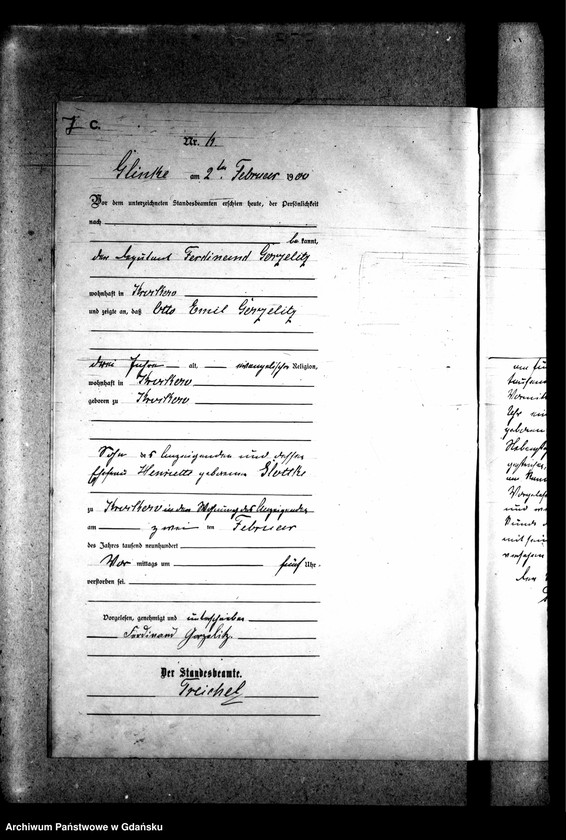 C.
Nr. 4
Glinke am 2ten Februar 1900
Vor dem unterzeichneten Standesbeamten erschien heute, der Persönlichkeit
nach
be kannt,
der Deputant Ferdinand Gorzelitz
wohnhaft in Krockow
und zeigte an, daß Otto Emil Gorzelitz
drei Jahre alt, evangelischer Religion,
wohnhaft in Krockow
geboren zu Krockow
Sohn des Anzeigenden und dessen
Ehefrau Henriette geborene
zu Krockow in der Wohnung des Anzeigenden
am zwei ten Februar
des Jahres tausend neunhundert
Vor mittags um fünf Uhr
verstorben sei.
Vorgelesen, genehmigt und unterschrieben
Ferdinand Gorzelitz.
Der Standesbeamte.
Treichel
am
tausen
Vormit
Uhr
geboren
und
Archiwum Państwowe w Gdańsku